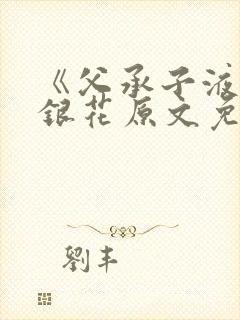 《父承子液
銀花原文免
劉丰